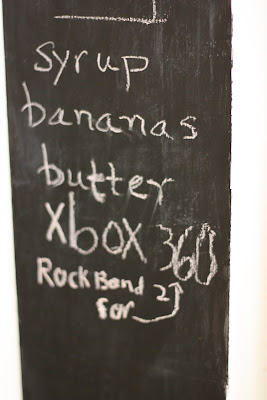 syrup
bananas
butter
xbox 360
Rock Band 2
for